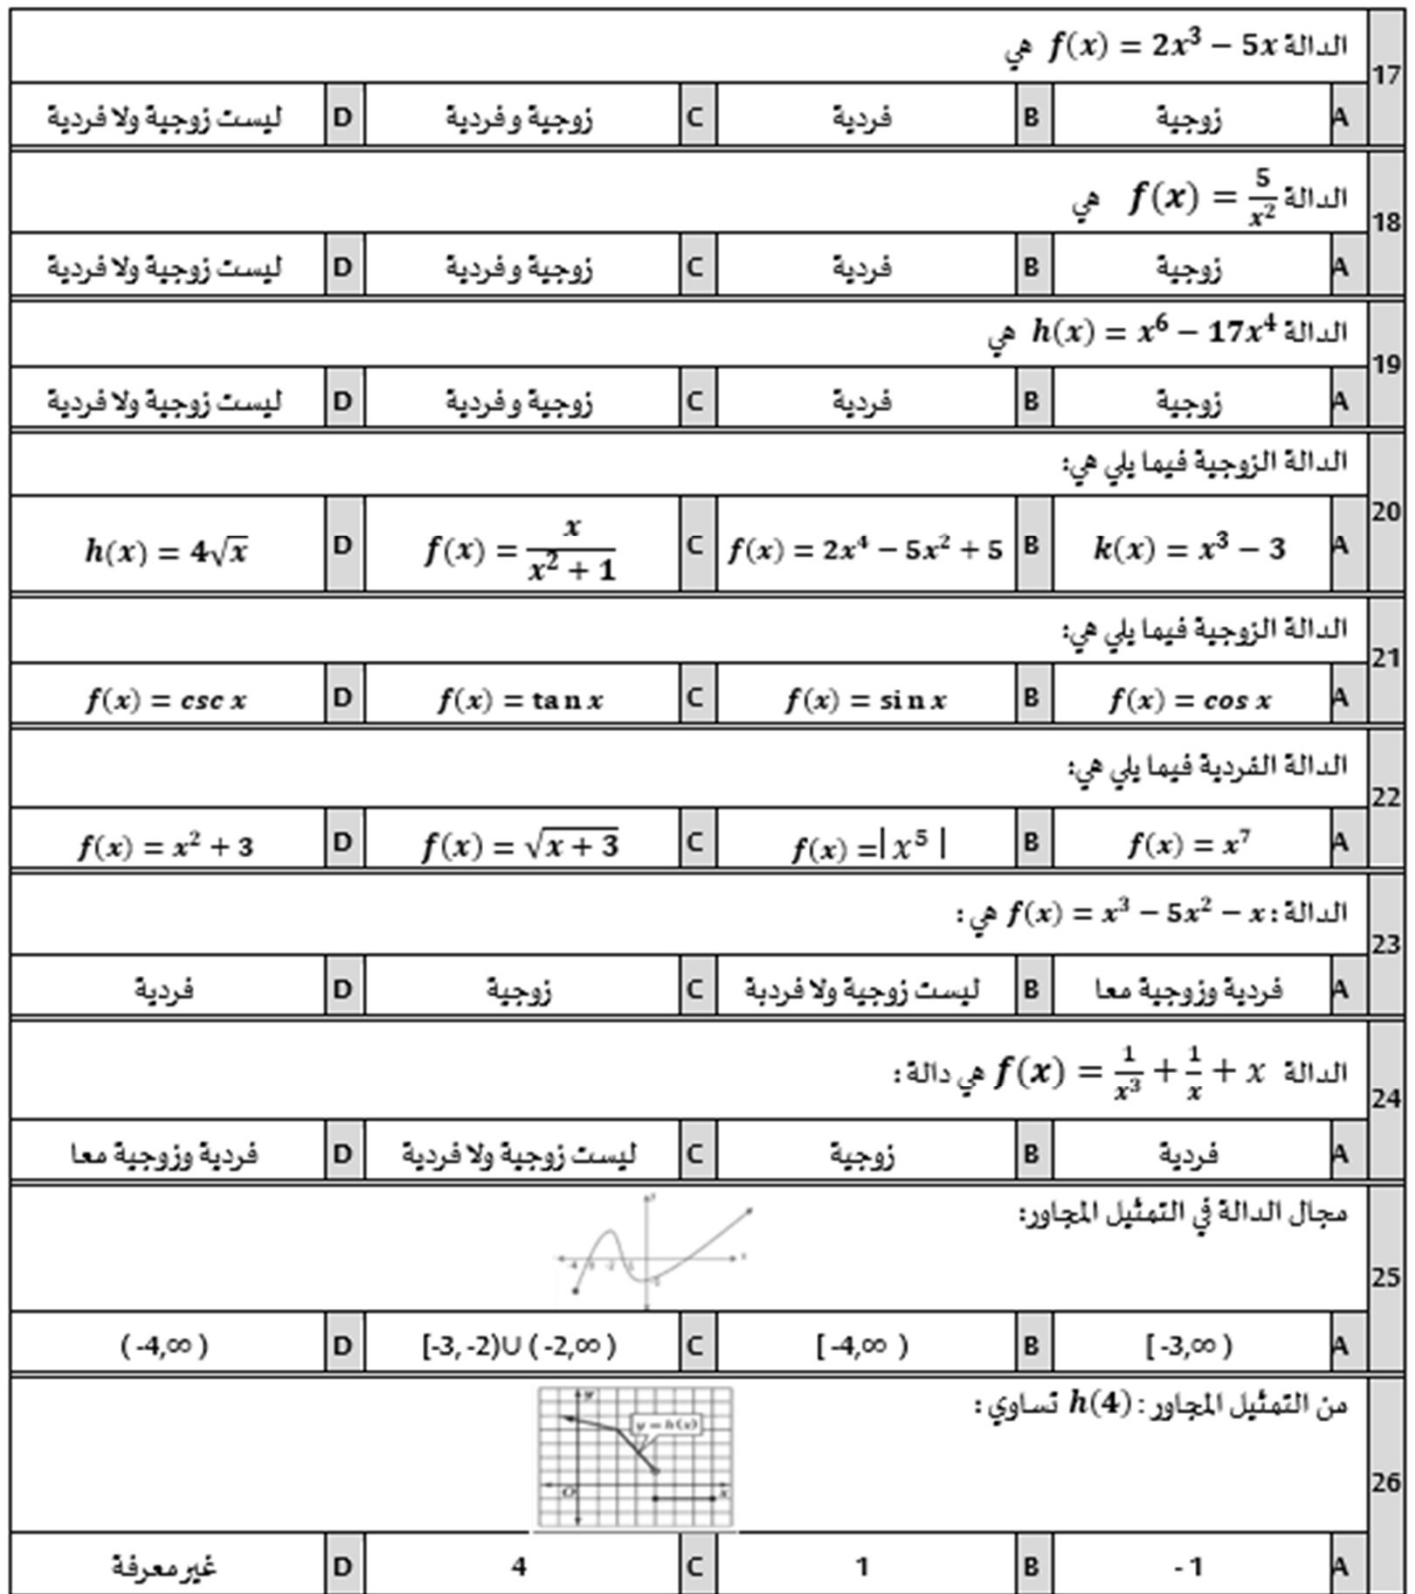 17
الدالة f(x) = 2x³ − 5x هي
A زوجية B فردية C زوجية و فردية D ليست زوجية ولا فردية
18
الدالة f(x) = 5/x² هي
A زوجية B فردية C زوجية و فردية D ليست زوجية ولا فردية
19
الدالة h(x) = x⁶ − 17x⁴ هي
A زوجية B فردية C زوجية و فردية D ليست زوجية ولا فردية
20
الدالة الزوجية فيما يلي هي:
A k(x) = x³ − 3 B f(x) = 2x⁴ − 5x² + 5 C f(x) = x/(x² + 1) D h(x) = 4√x
21
الدالة الزوجية فيما يلي هي:
A f(x) = cos x B f(x) = sin x C f(x) = tan x D f(x) = csc x
22
الدالة الفردية فيما يلي هي:
A f(x) = x⁷ B f(x) =| x⁵ | C f(x) = √(x + 3) D f(x) = x² + 3
23
الدالة : f(x) = x³ − 5x² − x هي :
A فردية وزوجية معا B ليست زوجية ولا فردية C زوجية D فردية
24
الدالة f(x) = 1/x³ + 1/x + x هي دالة :
A فردية B زوجية C ليست زوجية ولا فردية D فردية وزوجية معا
25
مجال الدالة في التمثيل المجاور:
-4 -2
x
A [ -3,∞ ) B [ -4,∞ ) C [-3, -2)∪ ( -2,∞ ) D ( -4,∞ )
26
من التمثيل المجاور : h(4) تساوي :
y
y = h(x)
O
x
A - 1 B 1 C 4 D غير معرفة